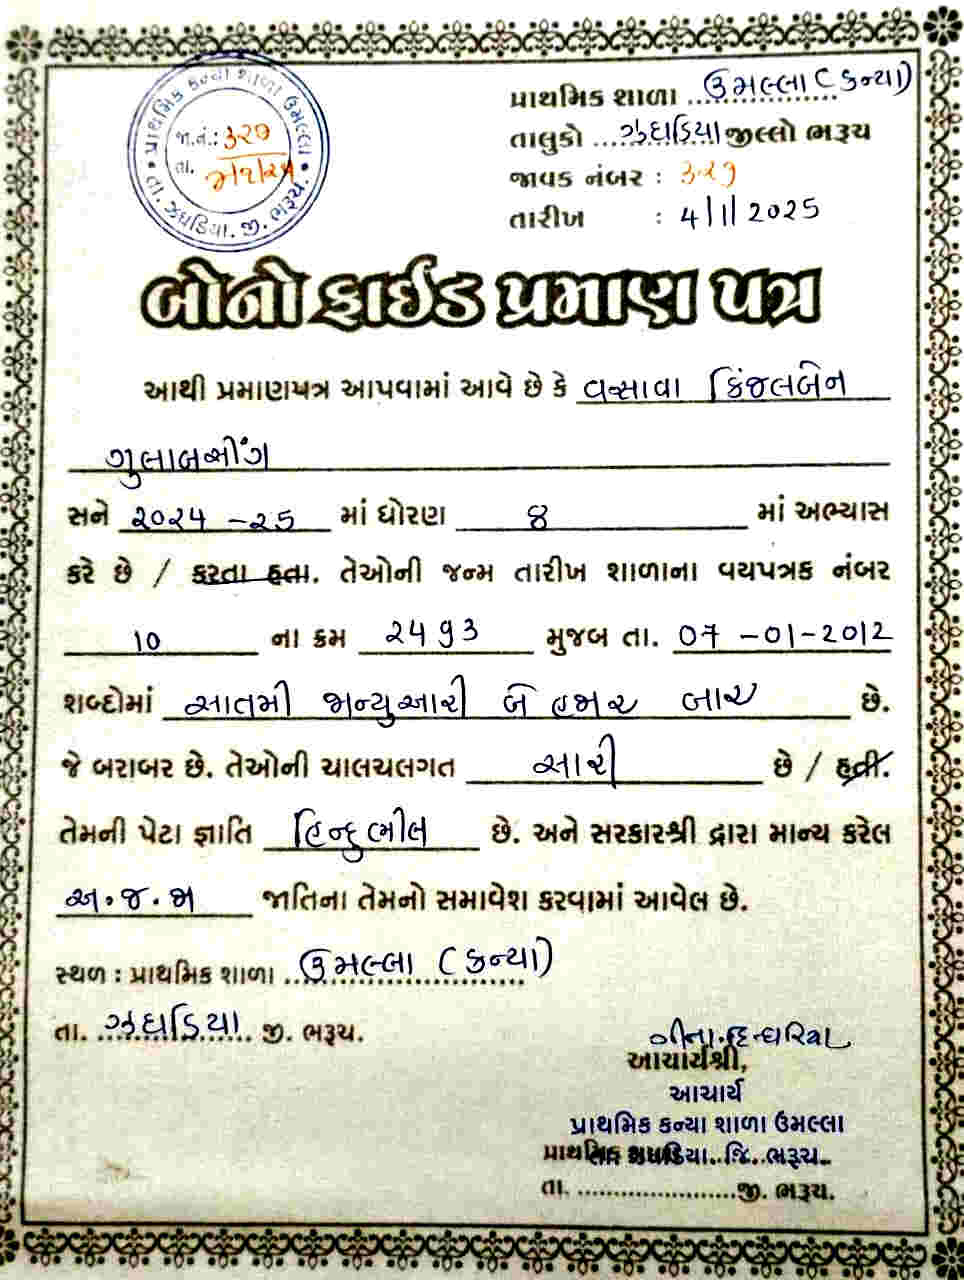 પ્રાથમિક કન્યા શાળા ઉમલ્લા
જા.નં.: ૩૨૭
તા.
તા. ઝઘડિયા. જી. ભરૂચ.
પ્રાથમિક શાળા ઉમલ્લા (કન્યા)
તાલુકો ઝઘડિયા જીલ્લો ભરૂચ
જાવક નંબર : ૩૨૭
તારીખ : 4/1/2025
બોનોફાઈડ પ્રમાણ પત્ર
આથી પ્રમાણપત્ર આપવામાં આવે છે કે વસાવા કિંજલબેન
ગુલાબસીંગ
સને ૨૦૨૪ - ૨૫ માં ધોરણ ૪ માં અભ્યાસ
કરે છે / કરતા હતા. તેઓની જન્મ તારીખ શાળાના વયપત્રક નંબર
10 ના ક્રમ ૨૪૧૩ મુજબ તા. 07 - 01 - 2012
શબ્દોમાં સાતમી જાન્યુઆરી બે હજાર બાર છે.
જે બરાબર છે. તેઓની ચાલચલગત સારી છે / હતી.
તેમની પેટા જ્ઞાતિ હિન્દુ ભીલ છે. અને સરકારશ્રી દ્વારા માન્ય કરેલ
અ.જ.જા જાતિના તેમનો સમાવેશ કરવામાં આવેલ છે.
સ્થળ : પ્રાથમિક શાળા ઉમલ્લા (કન્યા)
તા. ઝઘડિયા જી. ભરૂચ.
આચાર્યશ્રી,
આચાર્ય
પ્રાથમિક કન્યા શાળા ઉમલ્લા
પ્રાથમિક શાળા
તા. ઝઘડિયા. જિ. ભરૂચ.
તા. ........................જી. ભરૂચ.